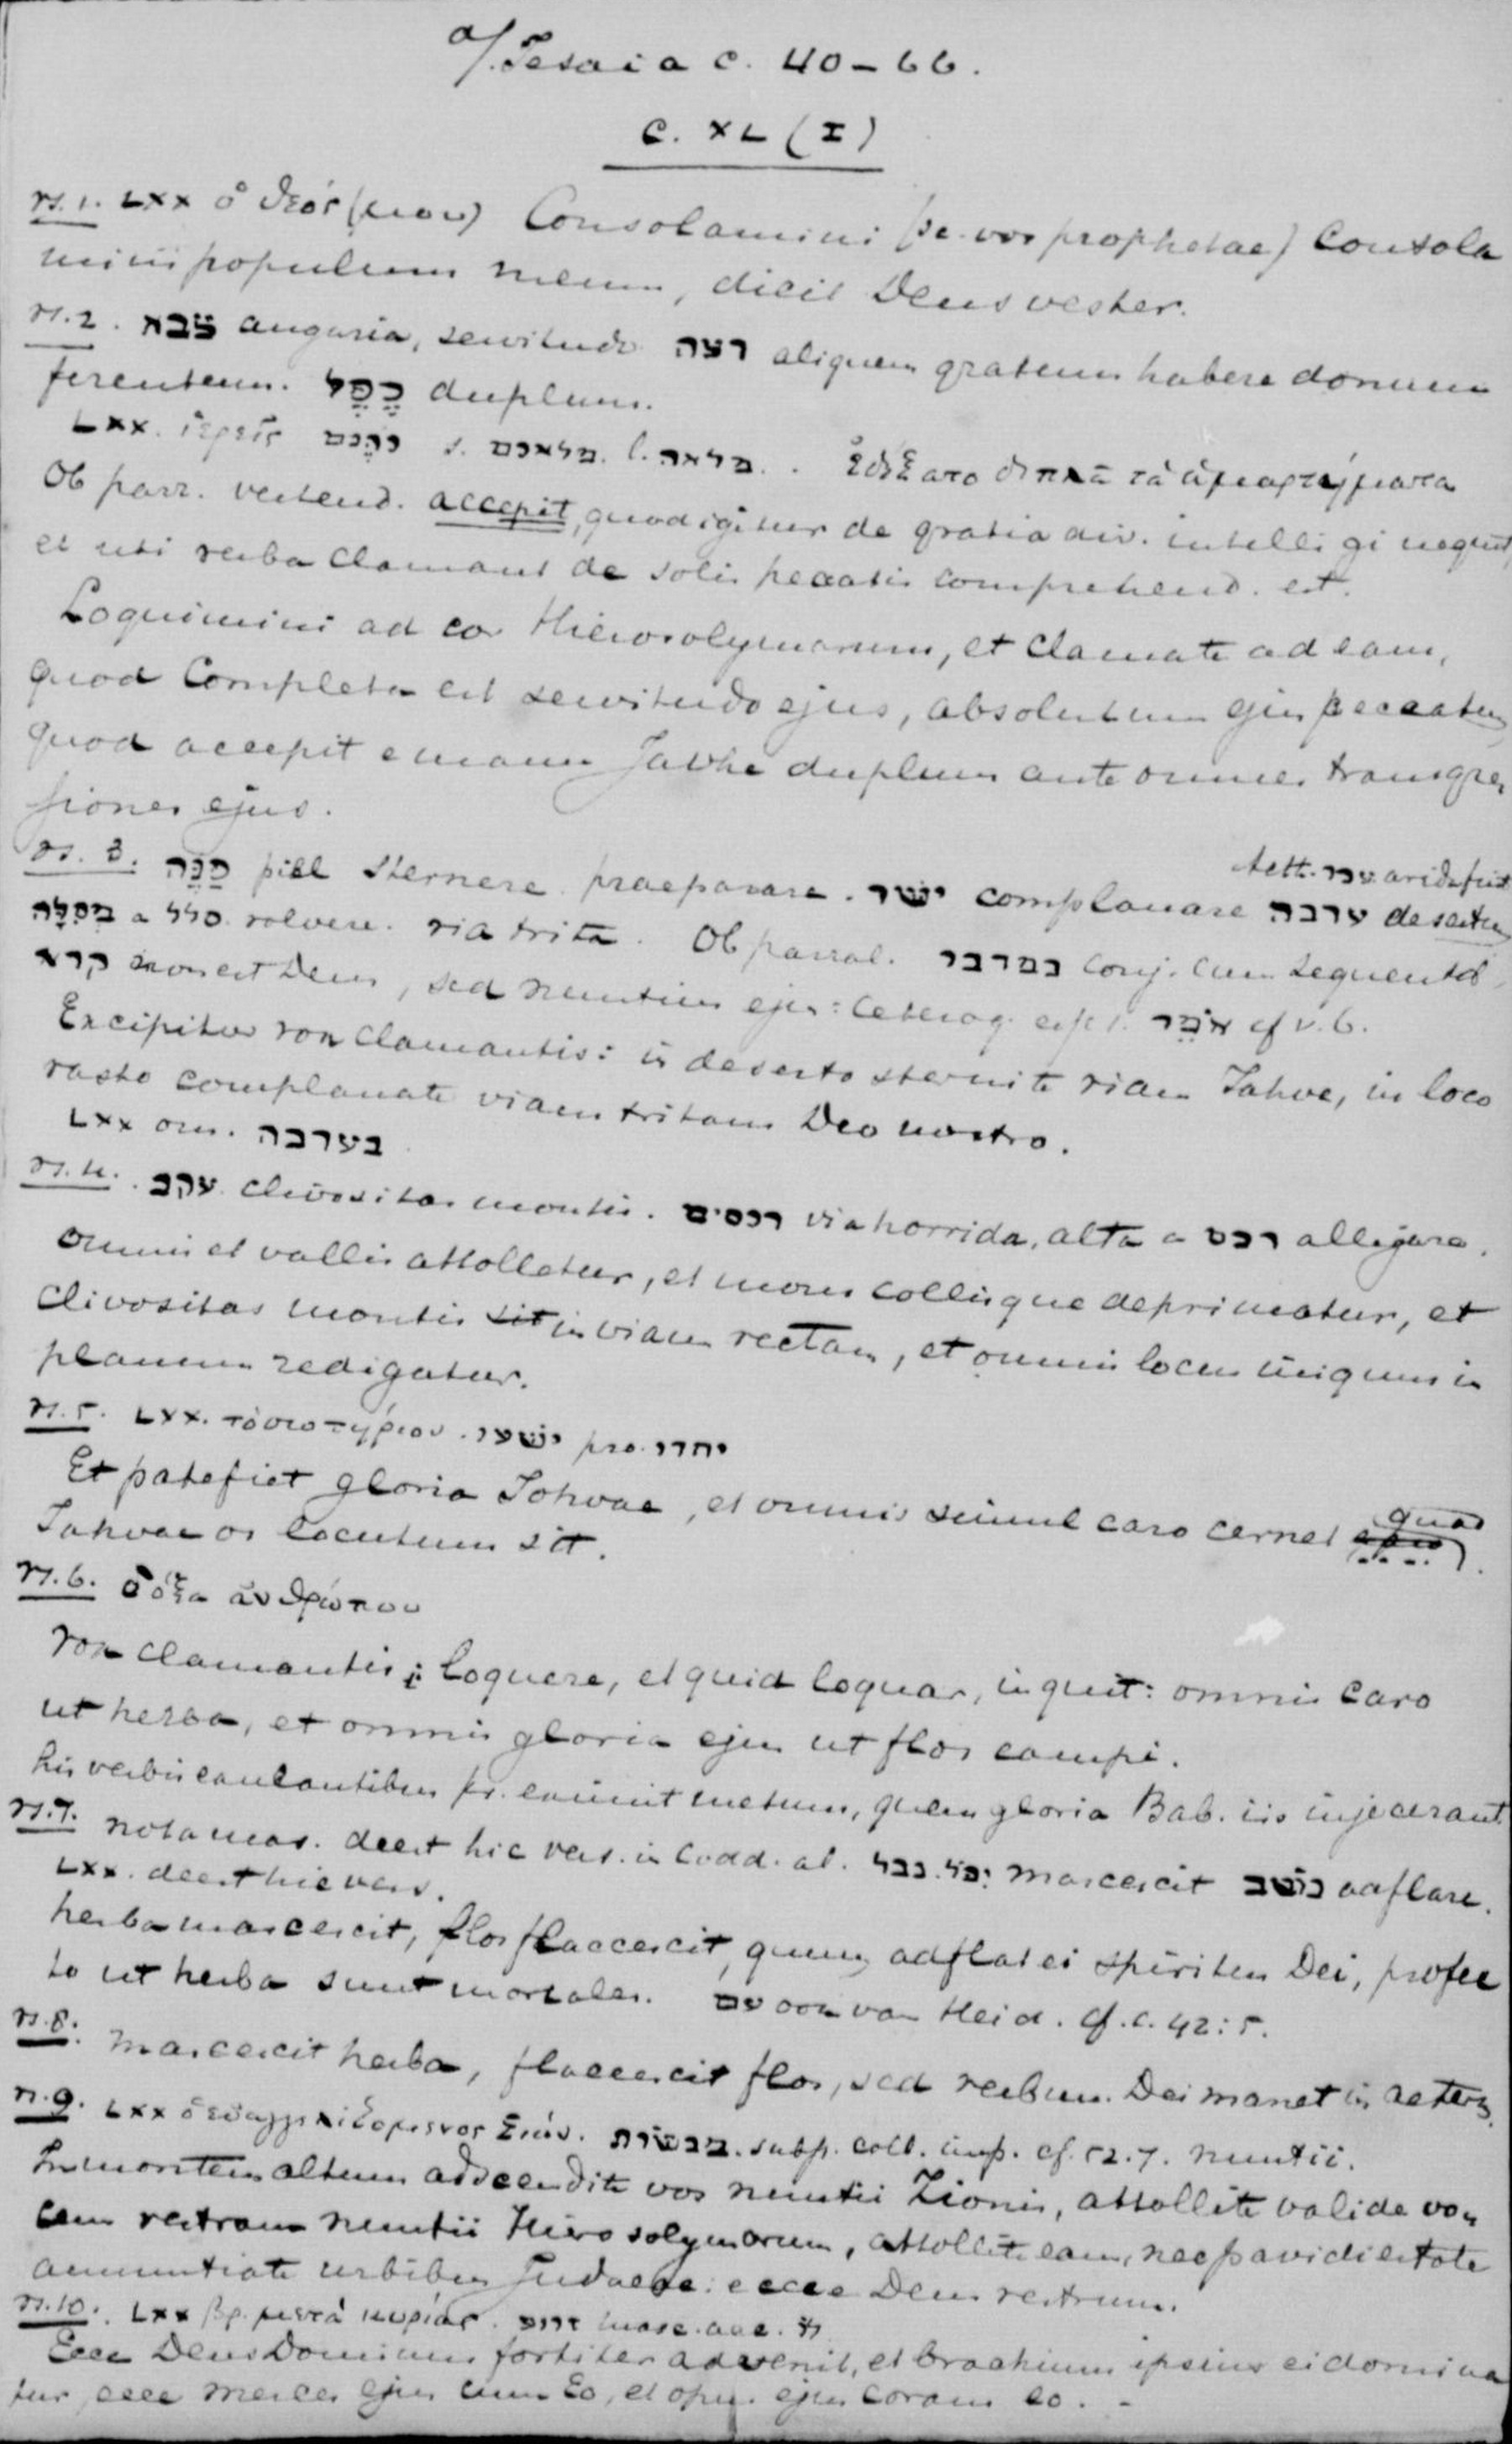 a/. Jesaia c. 40-66.
C. XL (I)
vs. 1. LXX ὁ θεός (μου) Consolamini (sc. vos prophetae) Consola
mini populum meum, dicit Deus vester.
vs. 2. צבא angaria, servitudo רצה aliquem gratum habere donum
ferentem. כֶּפֶל duplum.
LXX. ἱερεῖς כֹהנם s. מלאכם l. מלאה. ἐδέξατο διπλᾶ τὰ ἁμαρτήματα
Ob parr. vertend. accepit, quod igitur de gratia div. intelligi nequit,
et uti verba clamant de solis peccatis comprehend. est.
Loquimini ad cor Hierosolymarum, et clamate ad eam,
quod completa est servitudo ejus, absolutum ejus peccatum,
quod accepit e manu Javhe duplum ante omnes transgres
siones ejus.
vs. 3. פנה piel sternere praeparare. ישר complanare ערבה desertum
Aeth. עבר arida fuit
מסלה a סלל volvere. via trita. Ob parral. במדבר conj. cum sequentib,
קרא non est Deus, sed nuntius ejus: ceterog. expl. אֹמֵר cf v. 6.
Excipitur vox clamantis: in deserto sternite viam Jahve, in loco
vasto complanate viam tritam Deo nostro.
LXX om. בערבה
vs. 4. עקב clivositas montis. רכסים via horrida, alta a רכס alligare.
omnis et vallis attolletur, et mons collisque deprimatur, et
clivositas montis sit in viam rectam, et omnis locus iniquus in
planum redigatur.
vs. 5. LXX. τὸ σωτήριον. ישעו pro יחדו
Et patefiet gloria Jahvae, et omnis simul caro cernet quod
Jahvae os locutum sit.
vs. 6. δόξα ἀνθρώπου
vox clamantis: loquere, et quid loquar, inquit: omnis caro
ut herba, et omnis gloria ejus ut flos campi.
his verbis pr. eximit metum, quem gloria Bab. iis injecerant.
vs. 7. nota mas. deest hic vers. in Codd. al. יבל. נבל marcescit נשב adflare.
LXX. deest hic vers.
herba marcescit, flos flaccescit, quum adflat ei spiritus Dei, profec
to ut herba sunt mortales. עם van Heid. cf. c. 42:5.
vs. 8. marcescit herba, flaccescit flos, sed verbum Dei manet in aetern.
vs. 9. LXX ὁ εὐαγγελιζόμενος Σιών. מבשרת. subst. coll. imp. cf. 52.7. nuntii.
In montem altum adscendite vos nuntii Zionis, attollite valide vo
cem vestram nuntii Hierosolymorum, attollite eam, nec pavidi estote
annuntiate urbibus Judaeae: ecce Deus vestrum.
vs. 10. LXX βρ. μετὰ κυρίας. זרוע masc. acc.
Ecce Deus Dominus fortiter advenit, et brachium ipsius ei domina
tur, ecce merces ejus cum Eo, et opus ejus coram eo. -